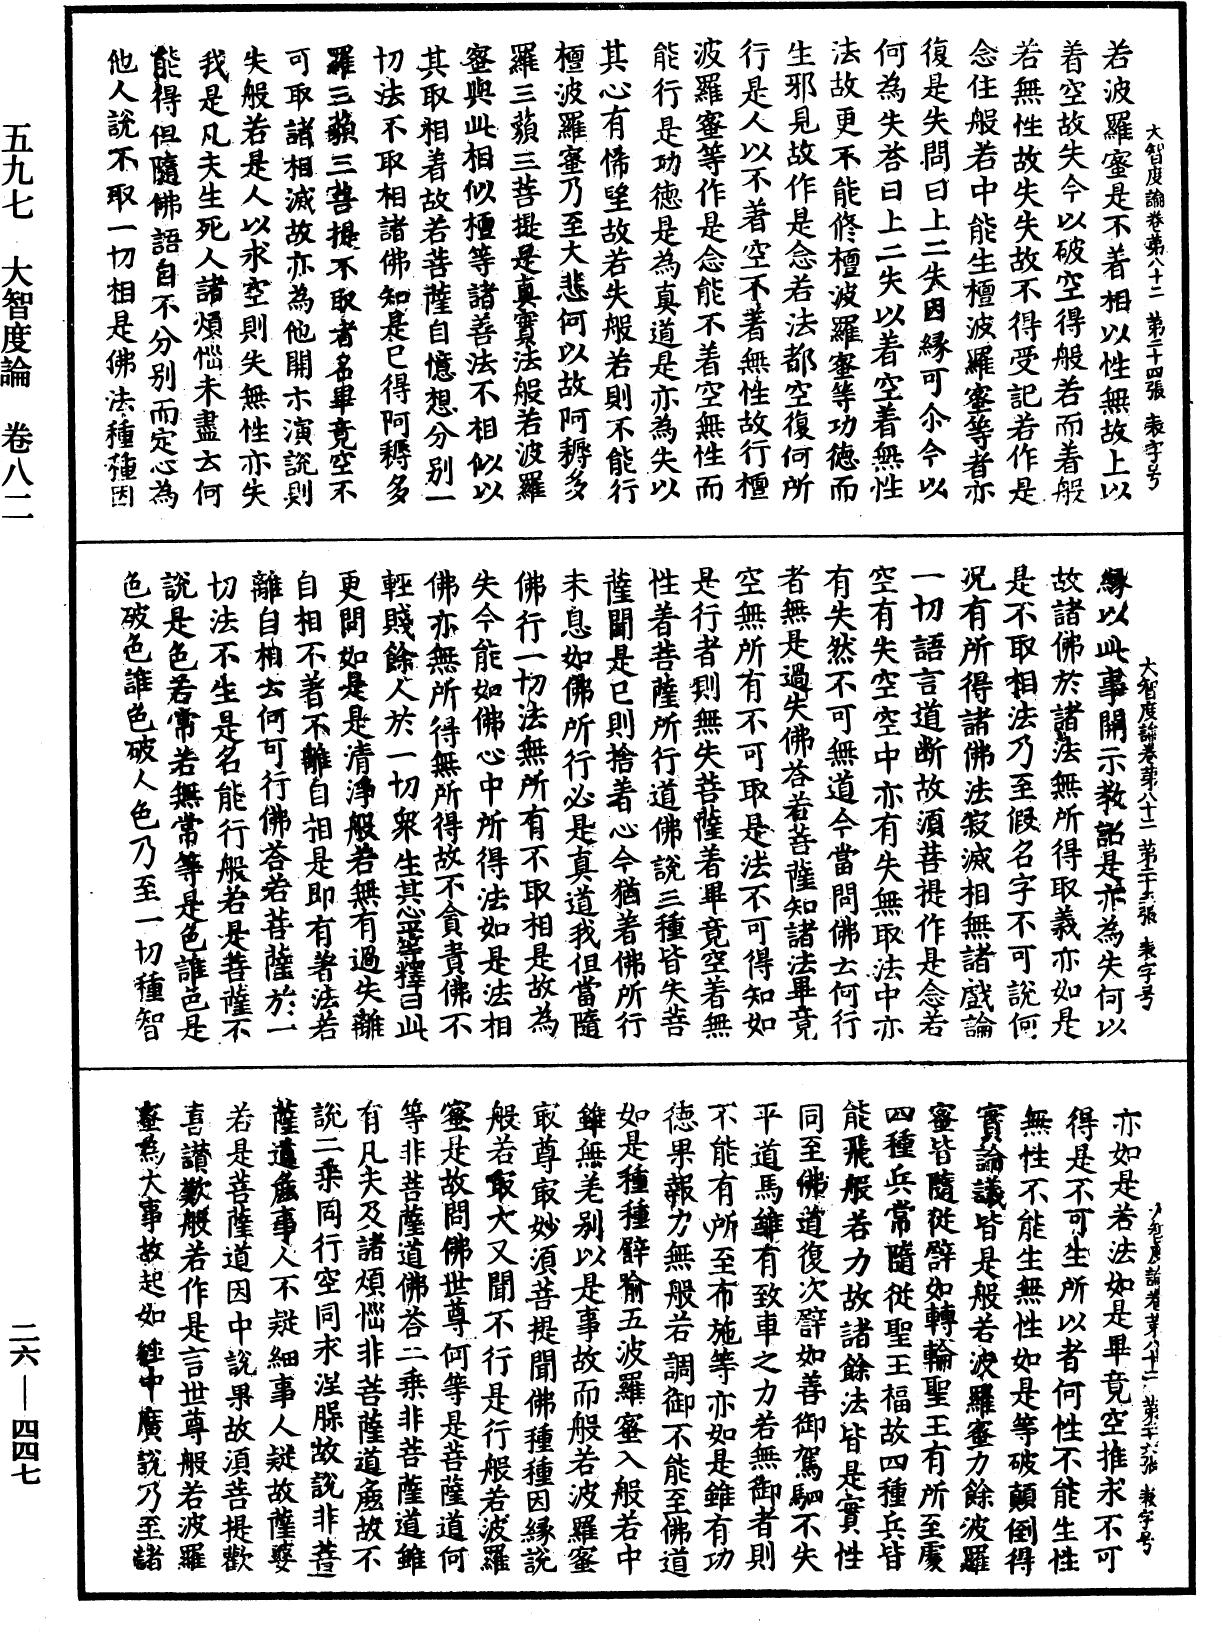 五九七　大智度論　卷八二
二六—四四七
大智度論卷第八十二　第二十四張　表字号
若波羅蜜是不着相以性無故上以
着空故失今以破空得般若而着般
若無性故失失故不得受記若作是
念住般若中能生檀波羅蜜等者亦
復是失問曰上二失因緣可尒今以
何為失荅曰上二失以着空着無性
法故更不能修檀波羅蜜等功德而
生邪見故作是念若法都空復何所
行是人以不着空不着無性故行檀
波羅蜜等作是念能不着空無性而
能行是功德是為真道是亦為失以
其心有悕望故若失般若則不能行
檀波羅蜜乃至大悲何以故阿耨多
羅三藐三菩提是真實法般若波羅
蜜與此相似檀等諸善法不相似以
其取相着故若菩薩自憶想分別一
切法不取相諸佛知是已得阿耨多
羅三藐三菩提不取者名畢竟空不
可取諸相滅故亦為他開示演說則
失般若是人以求空則失無性亦失
我是凡夫生死人諸煩惱未盡云何
能得但隨佛語自不分別而定心為
他人說不取一切相是佛法種種因
大智度論卷第八十二　第二十五張　表字号
緣以此事開示教詔是亦為失何以
故諸佛於諸法無所得取義亦如是
是不取相法乃至假名字不可說何
況有所得諸佛法寂滅相無諸戲論
一切語言道斷故須菩提作是念若
空有失空空中亦有失無取法中亦
有失然不可無道今當問佛云何行
者無是過失佛荅若菩薩知諸法畢竟
空無所有不可取是法不可得知如
是行者則無失菩薩着畢竟空着無
性着菩薩所行道佛說三種皆失菩
薩聞是已則捨着心今猶着佛所行
未息如佛所行必是真道我但當隨
佛行一切法無所有不取相是故為
失今能如佛心中所得法如是法相
佛亦無所得無所得故不貪貴佛不
輕賤餘人於一切衆生其心平等釋曰此
更問如是是清淨般若無有過失離
自相不著不離自相是即有著法若
離自相云何可行佛荅若菩薩於一
切法不生是名能行般若是菩薩不
說是色若常若無常等是色誰色是
色破色誰色破人色乃至一切種智
大智度論卷第八十二　第二十六張　表字号
亦如是若法如是畢竟空推求不可
得是不可生所以者何性不能生性
無性不能生無性如是等破顛倒得
實論議皆是般若波羅蜜力餘波羅
蜜皆隨從譬如轉輪聖王有所至處
四種兵常隨從聖王福故四種兵皆
能飛般若力故諸餘法皆是實性
同至佛道復次譬如善御駕駟不失
平道馬雖有致車之力若無御者則
不能有所至布施等亦如是雖有功
德果報力無般若調御不能至佛道
如是種種譬喻五波羅蜜入般若中
雖無差別以是事故而般若波羅蜜
㝡尊㝡妙須菩提聞佛種種因緣說
般若㝡大又聞不行是行般若波羅
蜜是故問佛世尊何等是菩薩道何
等非菩薩道佛荅二乘非菩薩道雖
有凡夫及諸煩惱非菩薩道麁故不
說二乘同行空同求涅槃故說非菩
薩道麁事人不疑細事人疑故薩婆
若是菩薩道因中說果故須菩提歡
喜讃歎般若作是言世尊般若波羅
蜜為大事故起如經中廣說乃至諸